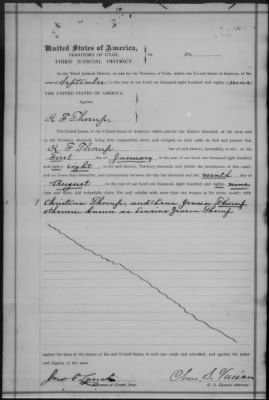 United States of America,
TERRITORY OF UTAH,
THIRD JUDICIAL DISTRICT.
ss. No.
In the Third Judicial District, in and for the Territory of Utah, within the United States of America, of the
September in the year of our Lord, one thousand eight hundred and eighty nine
THE UNITED STATES OF AMERICA,
Against
H F Thorup
The Grand Jurors of the United States of America, within and for the district aforesaid, in the
the Territory aforesaid, being duly empaneled, sworn and charged, on their oaths do find and present that
H F Thorup
late of said district, heretofore, to-wit: on the
First day of January in the year of our Lord one thousand eight hundred
and eighty eight in the said district, Territory aforesaid, and within the jurisdiction of this court,
and on divers days thereafter, and continuously between the day last aforesaid and the ninth day of
August in the year of our Lord one thousand eight hundred and eighty nine
then and there, did unlawfully claim, live and cohabit with more than one woman as his wives, to-wit: with
Christina Thorup, and Lena Jensen Thorup
otherwise known as Jensen Thorup
against the form of the statute of the said United States, in such case made and provided, and against the peace
and dignity of the same.
Foreman of Grand Jury.
Chas S. Varian
U. S. District Attorney.